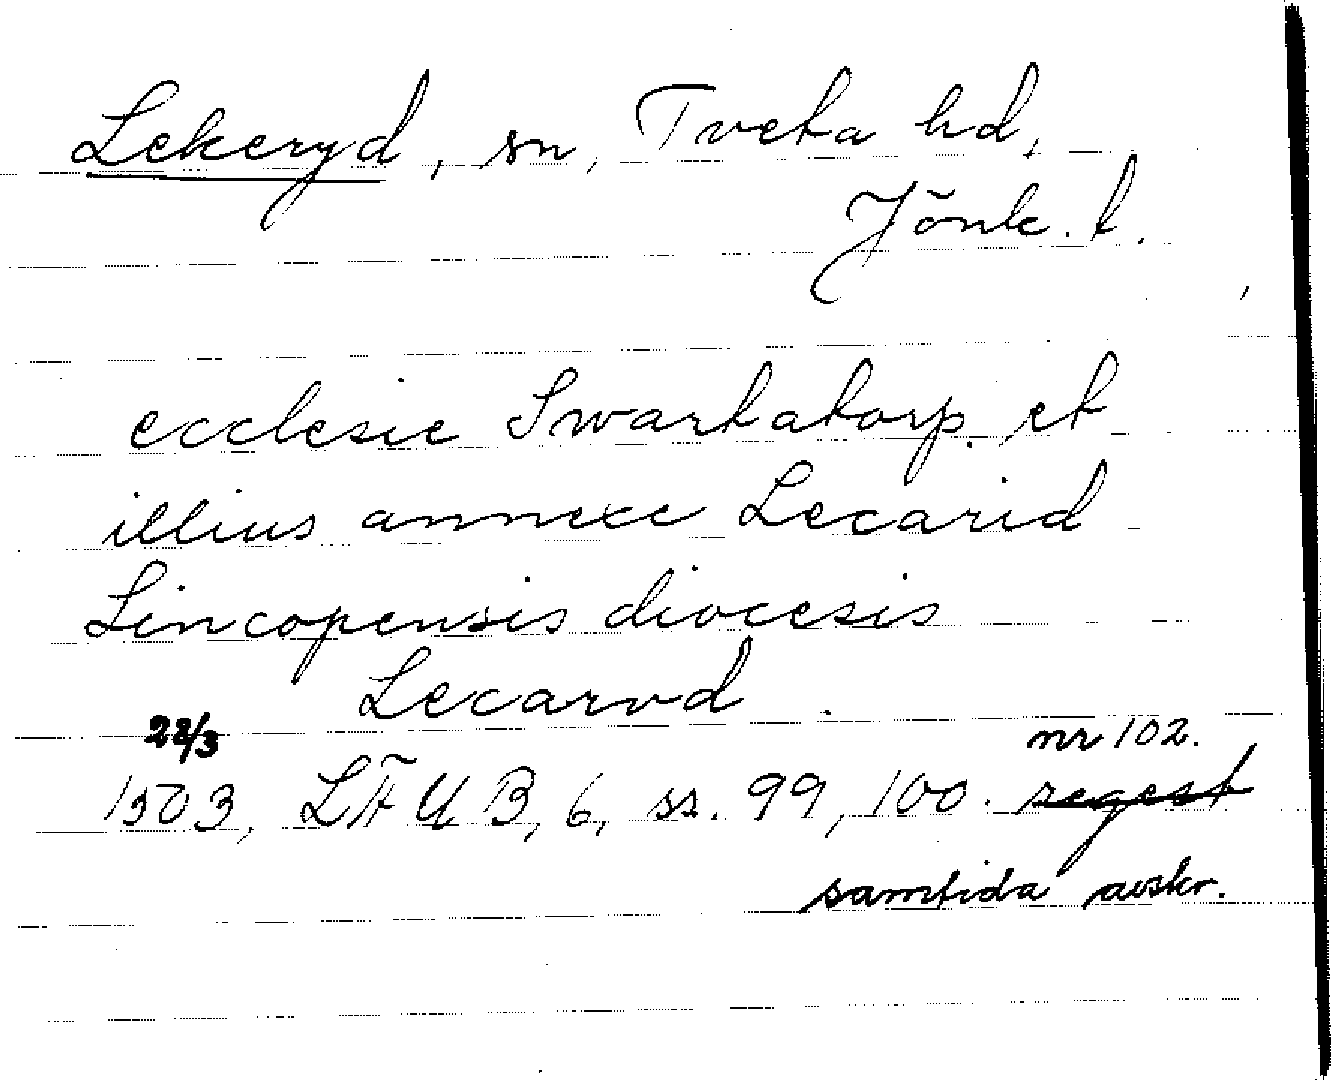 Lekeryd, sn, Tveta hd,
Jönk. l.
ecclesie Swartatorp et
illius annexe Lecarid
Lincopensis diocesis
Lecarvd
22/3 nr 102.
1503, LFUB, 6, ss. 99, 100. regest
samtida avskr.